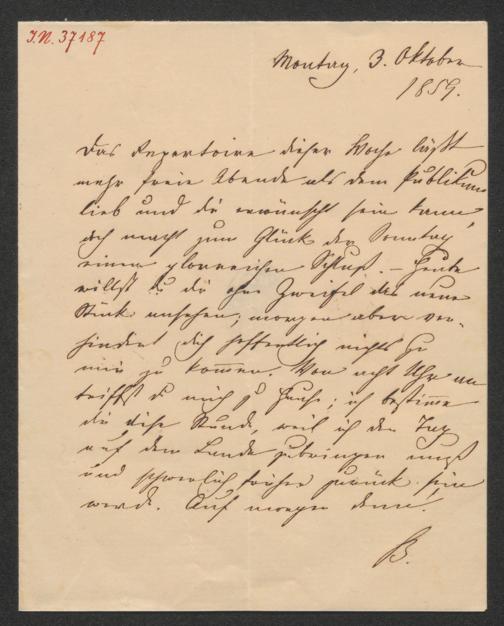 I.N. 37187
Montag, 3. Oktober
1859.
Das Repertoire dieser Woche läßt
mehr freie Abende als dem Publikum
lieb und dir erwünscht sein kann,
doch macht zum Glück der Sonntag
einen glorreichen Schluß. – Heute
willst du dir ohne Zweifel das neue
Stück ansehen; morgen aber ver-
hindert dich hoffentlich nichts zu
mir zu kommen. Von acht Uhr an
triffst du mich zu Hause; ich bestimme
die Stunde, weil ich den Tag
auf dem Lande zubringen muß
und schwerlich früher zurück sein
werde. Auf morgen denn!
B.